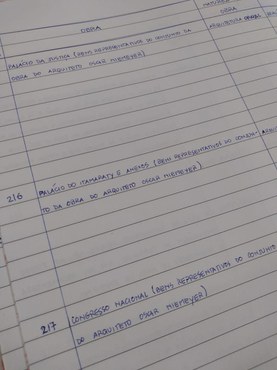 OBRA
OBRA
PALÁCIO DA JUSTIÇA (BENS REPRESENTATIVOS DO CONJUNTO DA
OBRA DO ARQUITETO OSCAR NIEMEYER)
216 PALÁCIO DO ITAMARATY E ANEXOS (BENS REPRESENTATIVOS DO CONJUN-
TO DA OBRA DO ARQUITETO OSCAR NIEMEYER)
217 CONGRESSO NACIONAL (BENS REPRESENTATIVOS DO CONJUNTO
DO ARQUITETO OSCAR NIEMEYER)